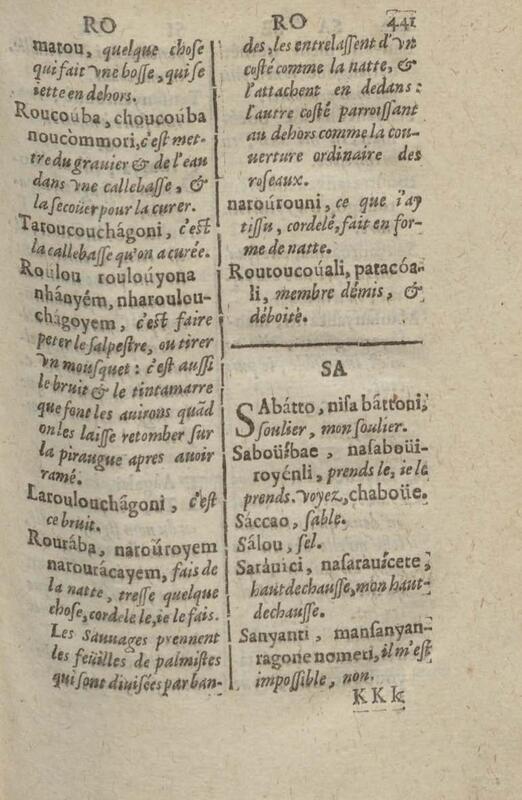 RO
RO
441
matou, quelque chose
qui fait vne bosse, qui se
iette en dehors.
Roucoúba, choucoúba
noucòmmori, c'est met-
tre du grauier & de l'eau
dans vne callebasse, &
la secoüer pour la curer.
Taroucouchágoni, c'est
la callebasse qu'on a curée.
Roúlou rouloúyona
nhányém, nharoulou-
chágoyem, c'est faire
peter le salpestre, ou tirer
vn mousquet: c'est aussi
le bruit & le tintamarre
que font les auirons quãd
on les laisse retomber sur
la piraugue apres auoir
ramé.
Laroulouchágoni, c'est
ce bruit.
Rourába, naroúroyem
narourácayem, fais de
la natte, tresse quelque
chose, cordele le, ie le fais.
Les Sauuages prennent
les feüilles de palmistes
qui sont diuisées par ban-
des, les entrelassent d'vn
costé comme la natte, &
l'attachent en dedans:
l'autre costé parroissant
au dehors comme la cou-
uerture ordinaire des
roseaux.
naroúrouni, ce que i'ay
tissu, cordelé, fait en for-
me de natte.
Routoucoúali, patacóa-
li, membre démis, &
déboité.
SA
SAbátto, nisa báttoni,
soulier, mon soulier.
Saboüíbae, nasaboüi-
royénli, prends le, ie le
prends. voyez, chaboüe.
Sáccao, sable.
Sálou, sel.
Saráuici, nasarauícete,
haut dechausse, mon haut-
dechausse.
Sanyanti, mansanyan-
ragone nomeri, il m'est
impossible, non.
KKk